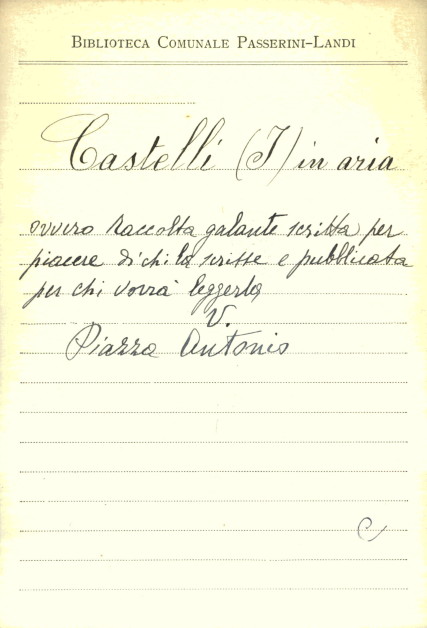 BIBLIOTECA COMUNALE PASSERINI-LANDI
Castelli (I) in aria
ovvero Raccolta galante scritta per
piacere di chi la scrisse e pubblicata
per chi vorrà leggerla
V.
Piazza Antonio
C